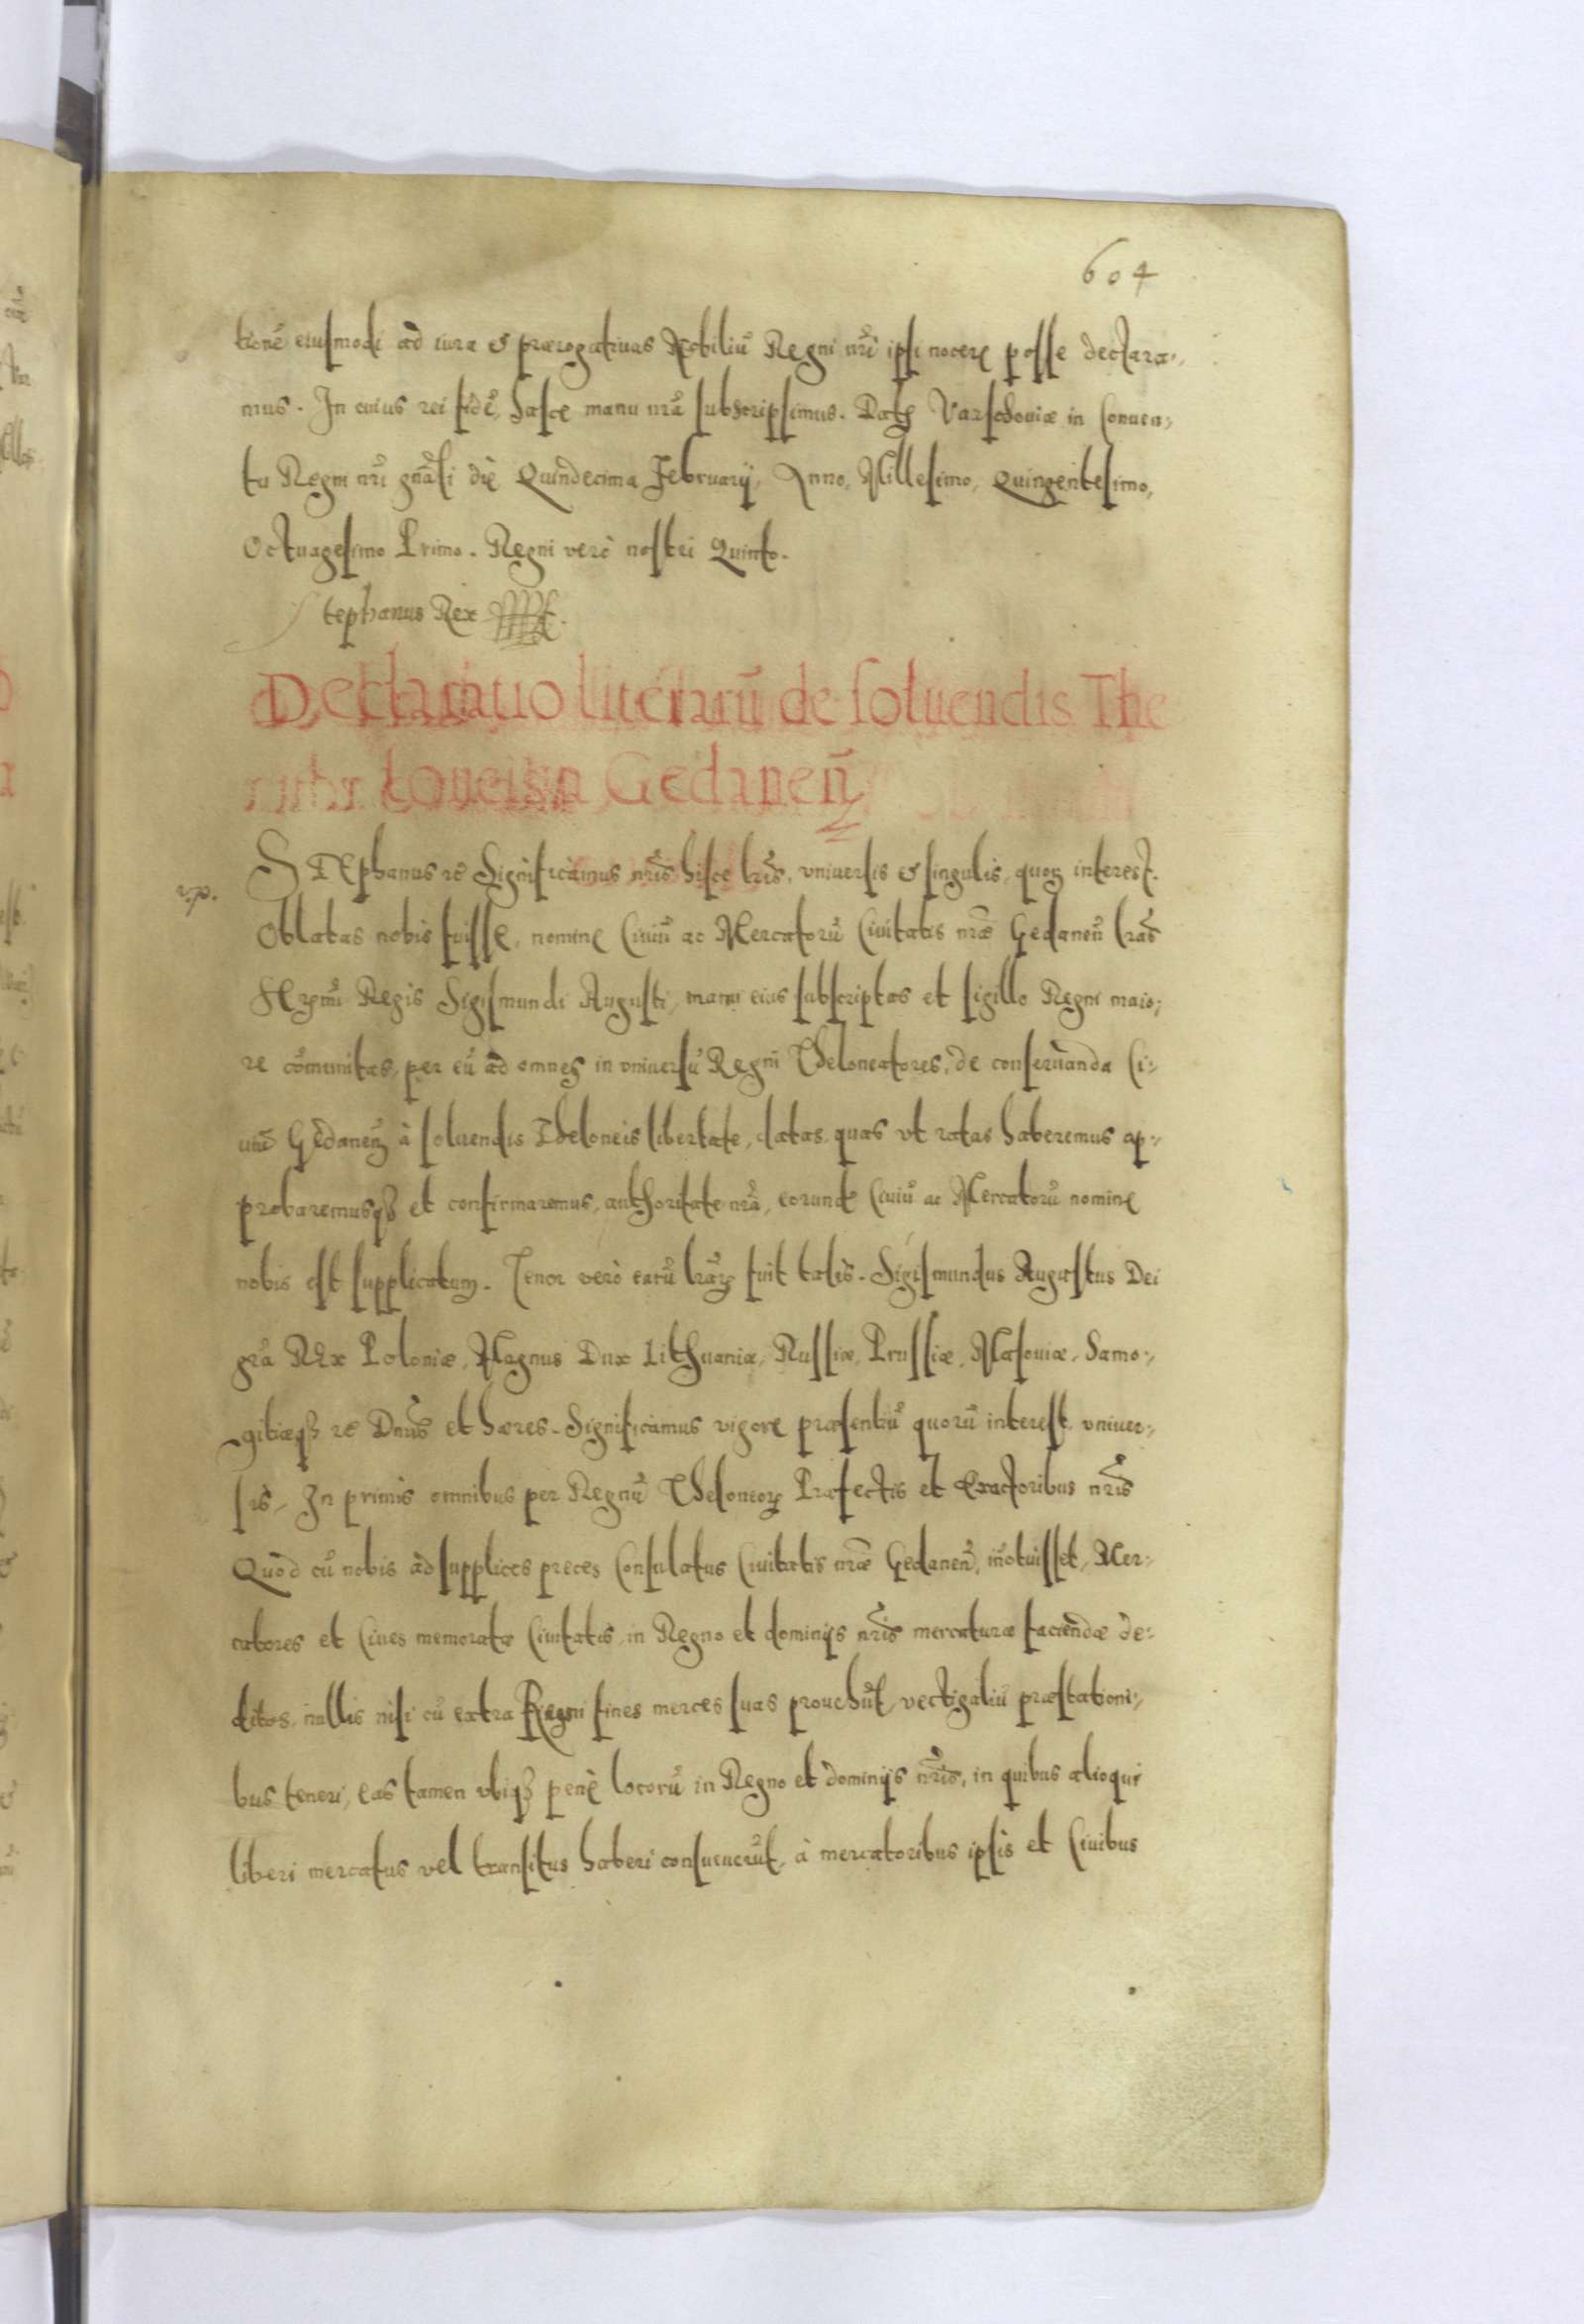 604
tionē eiusmodi ad iura et prærogatiuas Nobiliū Regni nrī ipsi nocere posse declara-
mus. In cuius rei fidē, hasce manu nrā subscripsimus. Datꝫ Varschouiæ in Conuen-
tu Regni nrī gnāli die Quindecima February, Anno, Millesimo, Quingentesimo,
Octuagesimo Primo. Regni verò nostri Quinto.
Stephanus Rex
Declaratio litērarū de soluendis The
loneis in Gedanen̄
STEphanus rē Significamus nrīs hisce lrīs, vniuersis et singulis, quoꝝ interest.
Oblatas nobis fuisse, nomine Ciuiū ac Mercatorū Ciuitatis nræ Gedanen̄ lrās
Regis Sigismundi Augusti, manu eius subscriptas et sigillo Regni maio-
re cōmunitas, per eū ad omnes in vniuersū Regni Theloneatores, de conseruanda Ci-
uiū Gedanen̄ à soluendis Theloneis libertate, datas, quas vt ratas haberemus ap-
probaremusqꝫ et confirmaremus, authoritate nrā, eorundē Ciuiū ac Mercatorū nomine
nobis est supplicatum. Tenor verò earū lrāꝝ fuit talis. Sigismundus Augustus Dei
grā REx Poloniæ, Magnus Dux Lithuaniæ, Russiæ, Prussiæ, Masouiæ, Samo-
gitiæqꝫ rē Dnūs et hæres. Significamus vigore præsentiū quorū interest, vniuer-
sis, In primis omnibus per Regnū Theloneoꝝ Præfectis et Exactoribus nrīs
Quod cū nobis ad supplices preces Consulatus Ciuitatis nræ Gedanen̄, iñotuisset, Mer-
catores et Ciues memoratæ Ciuitatis, in Regno et dominijs nrīs mercaturæ faciendæ de-
ditos, nullis nisi cū extra Regni fines merces suas prouehūt, vectigaliū præstationi-
bus teneri, eas tamen vbiqꝫ penè locorū in Regno et dominijs nrīs, in quibus alioqui
liberi mercatus vel transitus haberi consueuerūt, à mercatoribus ipsis et Ciuibus